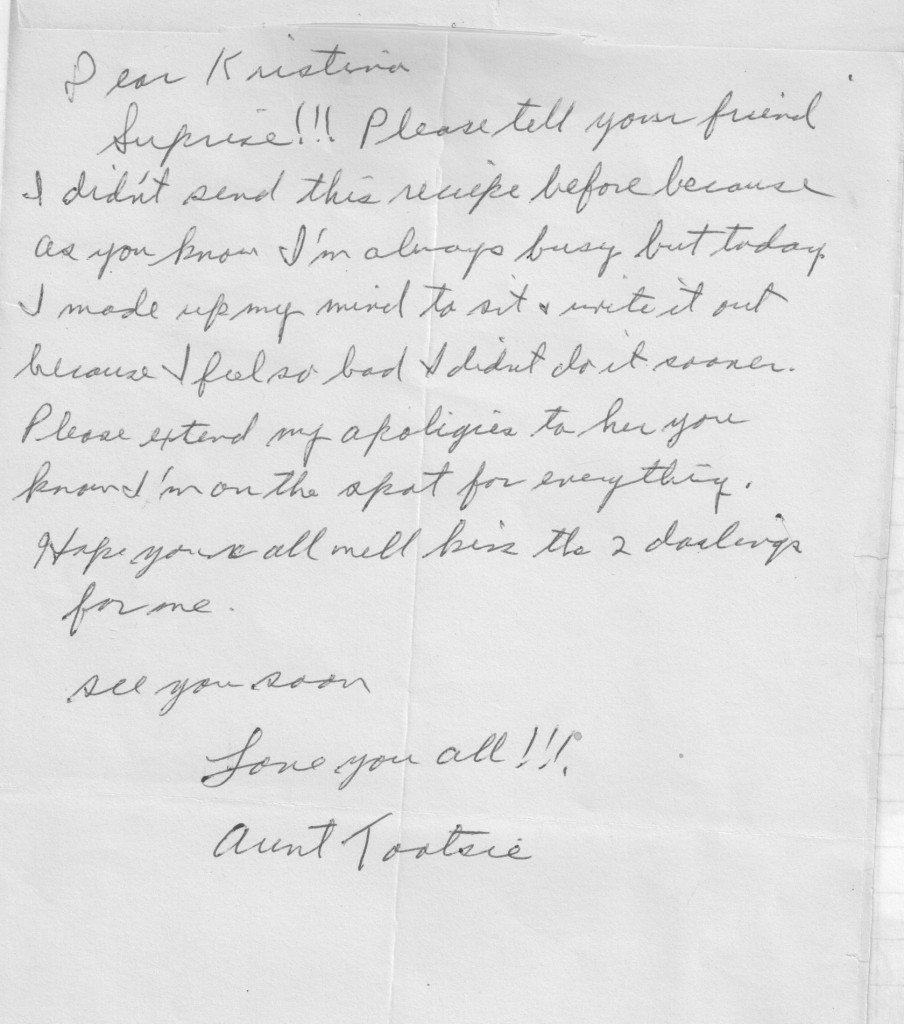 Dear Kristina
Suprise!!! Please tell your friend
I didn't send this reciepe before because
as you know I'm always busy but today
I made up my mind to sit & write it out
because I feel so bad I didnt do it sooner.
Please extend my apoligies to her you
know I'm on the spot for everything.
Hope your all well kiss the 2 darlings
for me.
see you soon
Love you all!!!
Aunt Tootsie